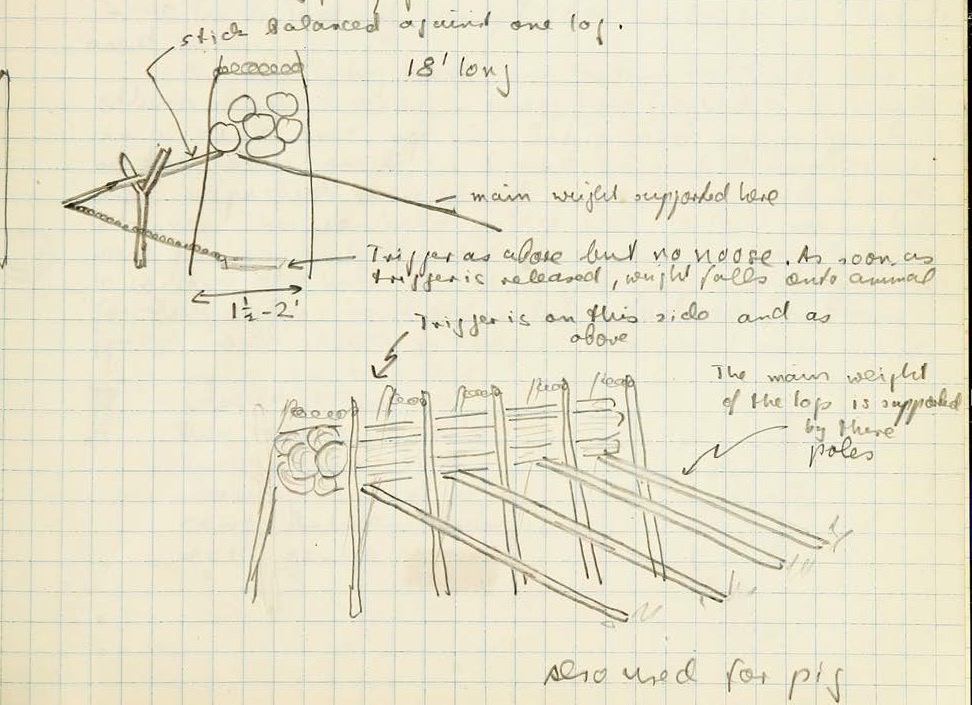 stick balanced against one log.
18' long
main weight supported here
Trigger as above but no noose. As soon as
trigger is released, weight falls onto animal
1½-2'
Trigger is on this side and as
above
The main weight
of the logs is supported
by these
poles
also used for pig